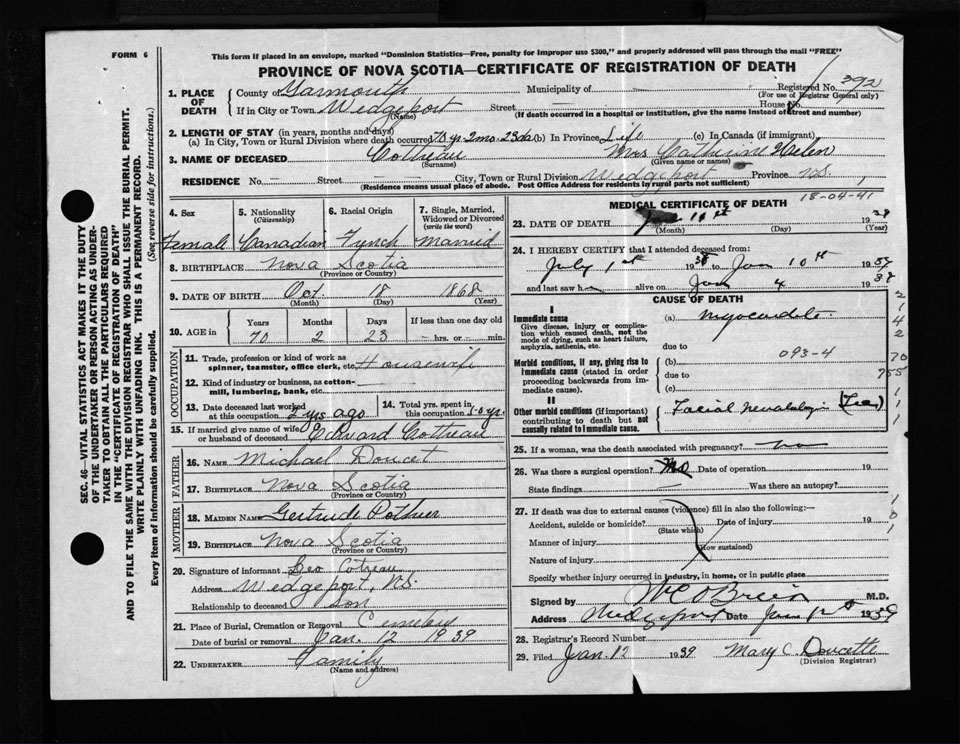 FORM 6
This form if placed in an envelope, marked "Dominion Statistics—Free, penalty for improper use $300," and properly addressed will pass through the mail "FREE"
PROVINCE OF NOVA SCOTIA—CERTIFICATE OF REGISTRATION OF DEATH
Registered No. 392
(For use of Registrar General only)
1. PLACE OF DEATH County of Yarmouth Municipality of —
If in City or Town Wedgeport Street — House No.
(Name) (If death occurred in a hospital or institution, give the name instead of street and number)
2. LENGTH OF STAY (in years, months and days)
(a) In City, Town or Rural Division where death occurred 70 yr-2mo-23da (b) In Province Life (c) In Canada (if immigrant)
3. NAME OF DECEASED Cottreau Mrs Catherine Helen
(Surname) (Given name or names)
RESIDENCE No. — Street — City, Town or Rural Division Wedgeport Province N.S.
(Residence means usual place of abode. Post Office Address for residents in rural parts not sufficient)
4. Sex Female
5. Nationality (Citizenship) Canadian
6. Racial Origin French
7. Single, Married, Widowed or Divorced (write the word) Married
8. BIRTHPLACE Nova Scotia
(Province or Country)
9. DATE OF BIRTH Oct. 18 1868
(Month) (Day) (Year)
10. AGE in Years Months Days If less than one day old
70 2 23 hrs. or min.
OCCUPATION
11. Trade, profession or kind of work as spinner, teamster, office clerk, etc. Housewife
12. Kind of industry or business, as cotton-mill, lumbering, bank, etc. —
13. Date deceased last worked at this occupation 2 yrs ago
14. Total yrs. spent in this occupation 50 yr.
15. If married give name of wife or husband of deceased Edward Cottreau
FATHER
16. NAME Michael Doucet
17. BIRTHPLACE Nova Scotia
(Province or Country)
MOTHER
18. MAIDEN NAME Gertrude Pothier
19. BIRTHPLACE Nova Scotia
(Province or Country)
20. Signature of informant Leo Cotreau
Address Wedgeport, N.S.
Relationship to deceased Son
21. Place of Burial, Cremation or Removal Cemetery
Date of burial or removal Jan. 12 1939
22. UNDERTAKER Family
(Name and address)
MEDICAL CERTIFICATE OF DEATH
18-04-41
23. DATE OF DEATH 10th 1939
(Month) (Day) (Year)
24. I HEREBY CERTIFY that I attended deceased from:
July 1st 1938 to Jan 10th 1939
and last saw h alive on Jan 4 1939
CAUSE OF DEATH
I
Immediate cause
Give disease, injury or complication which caused death, not the mode of dying, such as heart failure, asphyxia, asthenia, etc.
(a)
due to
093-4
Morbid conditions, if any, giving rise to immediate cause (stated in order proceeding backwards from immediate cause).
(b)
due to
(c)
II
Other morbid conditions (important) contributing to death but not causally related to immediate cause.
Facial Neuralgia
25. If a woman, was the death associated with pregnancy? no
26. Was there a surgical operation? No Date of operation 19
State findings Was there an autopsy?
27. If death was due to external causes (violence) fill in also the following:—
Accident, suicide or homicide? Date of injury 19
(State which)
Manner of injury
(How sustained)
Nature of injury
Specify whether injury occurred in industry, in home, or in public place
Signed by W C O'Brien M.D.
Address Wedgeport Date 1939
28. Registrar's Record Number
29. Filed Jan. 12 1939 Mary C. Doucette
(Division Registrar)
SEC. 46—VITAL STATISTICS ACT MAKES IT THE DUTY
OF THE UNDERTAKER OR PERSON ACTING AS UNDER-
TAKER TO OBTAIN ALL THE PARTICULARS REQUIRED
IN THE "CERTIFICATE OF REGISTRATION OF DEATH"
AND TO FILE THE SAME WITH THE DIVISION REGISTRAR WHO SHALL ISSUE THE BURIAL PERMIT.
WRITE PLAINLY WITH UNFADING INK. THIS IS A PERMANENT RECORD.
Every item of information should be carefully supplied. (See reverse side for instructions.)